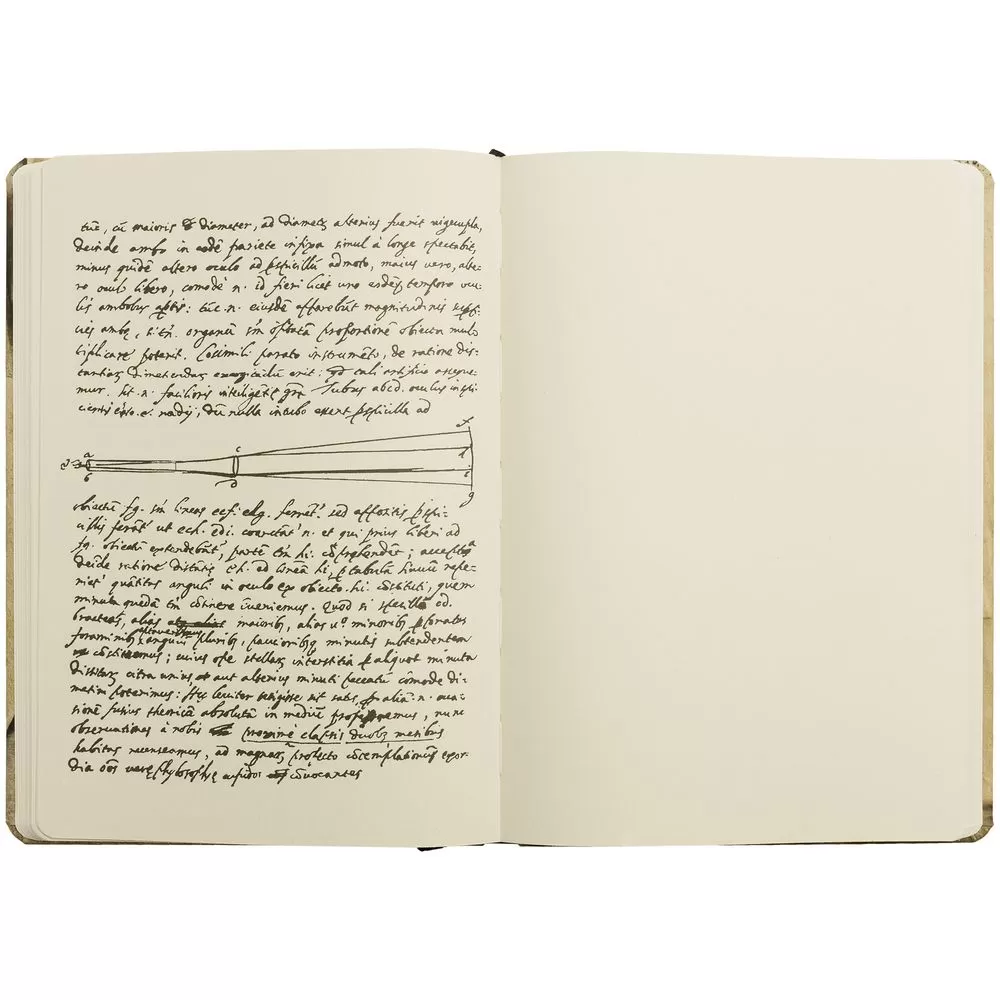 tũc, cũ maioris diameter, ad diametȝ alterius fuerit vigecupla,
deinde ambo in eodē pariete infixa simul à longe spectabit,
minus quidē altero oculo ad pspicillũ admoto, maius vero, alte-
ro oculo libero, comodè n. id fieri licet uno eodēȝ tempore ocu-
lis ambobus aptis: tũc n. eiusdē apparebũt magnitudinis supfi-
cies ambę, si tñ. organũ sm optatā proportionē obiecta mul-
tiplicare poterit. Cosimili parato instrumēto, de ratione dis-
tantiaȝ dimetiendaȝ erit: qd tali artificio asseque-
mur. sit. n. facilioris intelligētię gra Tubus abcd. oculus inspi-
cientis esto. e. radij, dũ nulla in tubo essent pspicilla ad
a
b
c
d
f
g
obiectũ fg. sm lineas ecf. edg. ferret.' sed appositis pspi-
cillis ferāt' ut ech. edi. coarctāt' n. et qui prius liberi ad
fg. obiectũ extendebāt', partē tm hi. cōprehendēt; accepta
deīde ratione distātię eh. ad lineā hi, p tabulā sinuũ repe-
riet' quātitas anguli in oculo ex obiecto. hi. cōstituti, quem
minuta quedā tm cōtinere īveniemus. Quod si specillo cd.
bracteas, alias maioribȝ, alias vº. minoribȝ pforatas
foraminibȝ pluribȝ, paucioribȝȝ minutis subtendentem
cōstituemus; cuius ope stellarȝ interstitia p aliquot minuta
distitarȝ citra unius, aut alterius minuti peccatũ cōmode di-
metiri poterimus: Hęc leviter tetigisse sit satis, p aliā n. occa-
sionē fusius theoricā absolutā in mediũ proferemus, nunc
observationes à nobis proximè elapsis duobȝ mēsibus
habitas recenseamus, ad magnarȝ profecto cōtēplationũ exor-
dia oēs verę phylosophię cupidos cōvocantes